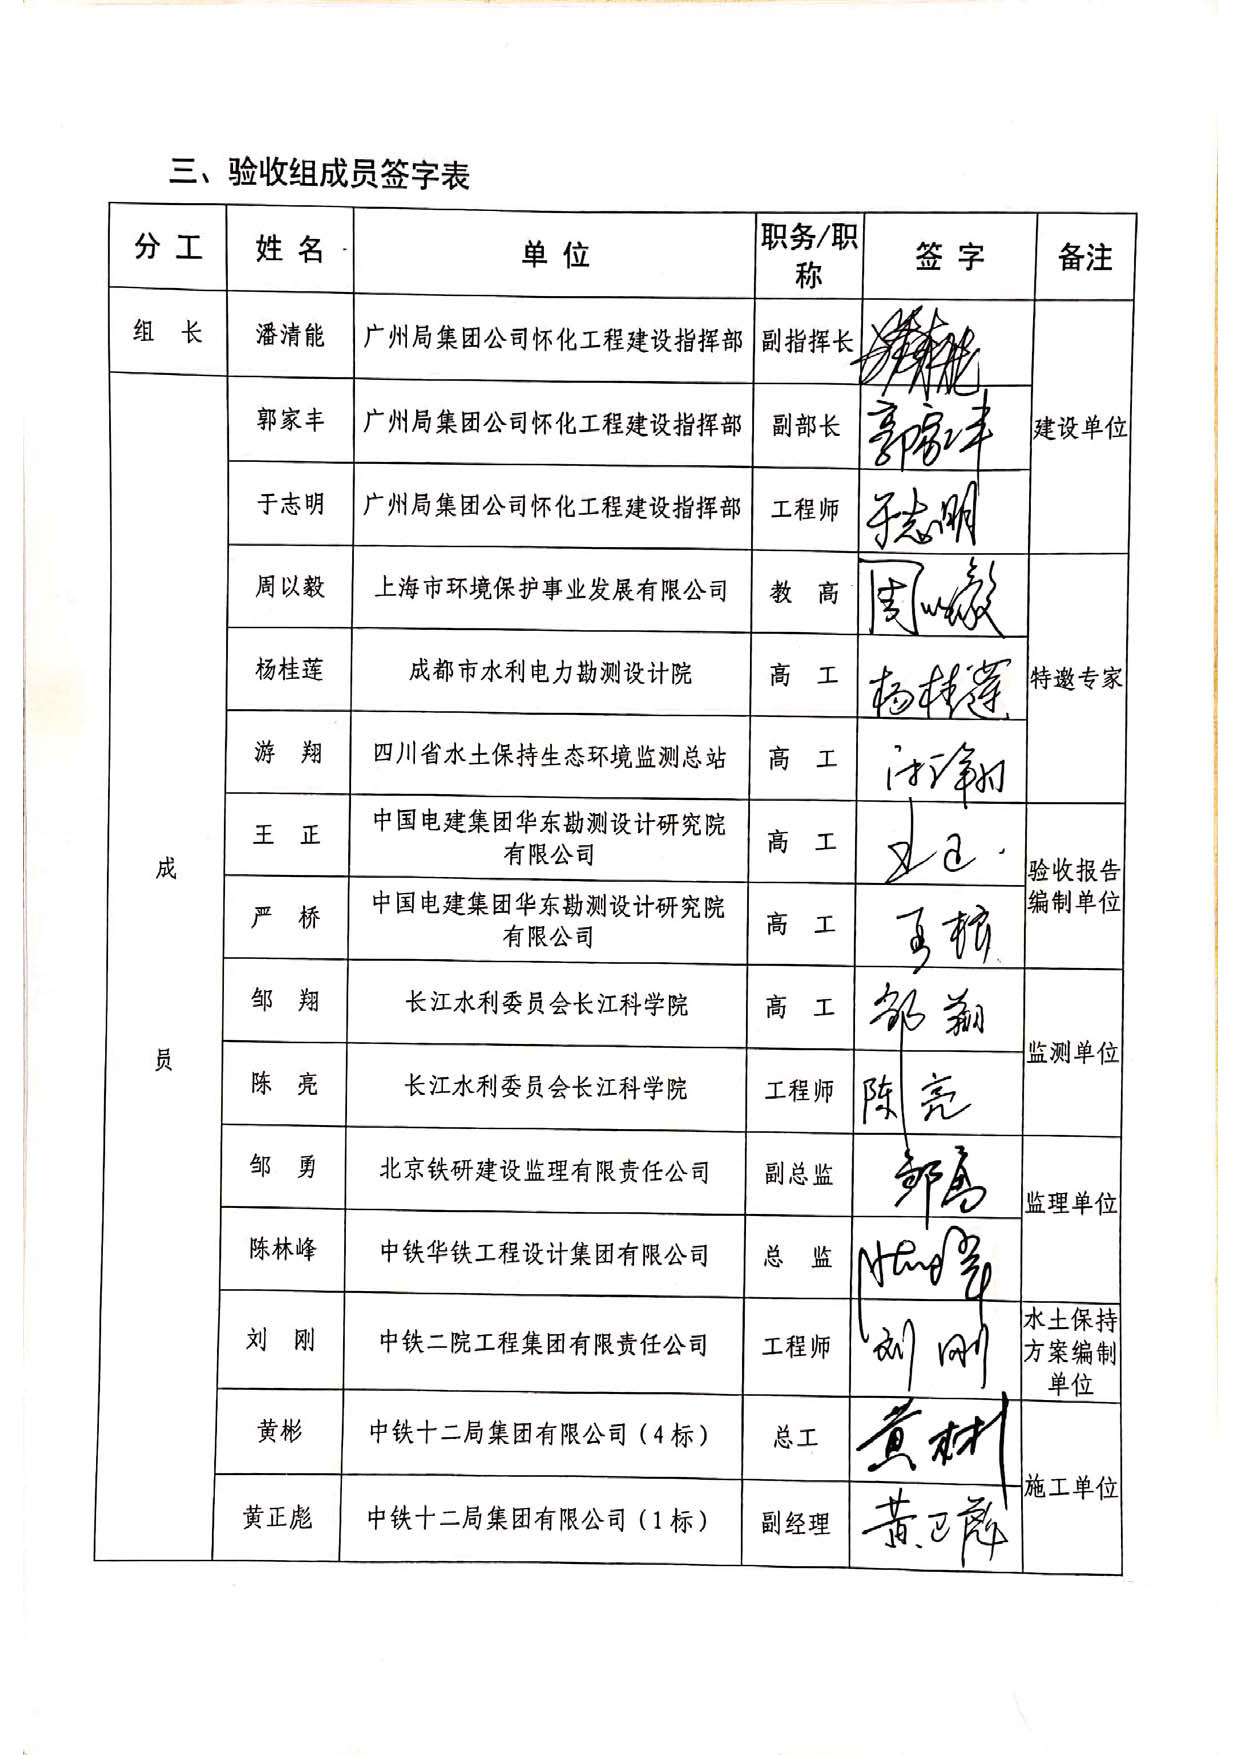 三、验收组成员签字表
分 工 姓 名 单 位 职务/职称 签 字 备注
组 长 潘清能 广州局集团公司怀化工程建设指挥部 副指挥长 潘清能 建设单位
成员
郭家丰 广州局集团公司怀化工程建设指挥部 副部长 郭家丰
于志明 广州局集团公司怀化工程建设指挥部 工程师 于志明
周以毅 上海市环境保护事业发展有限公司 教 高 周以毅 特邀专家
杨桂莲 成都市水利电力勘测设计院 高 工 杨桂莲
游 翔 四川省水土保持生态环境监测总站 高 工
王 正 中国电建集团华东勘测设计研究院有限公司 高 工 王正 验收报告编制单位
严 桥 中国电建集团华东勘测设计研究院有限公司 高 工
邹 翔 长江水利委员会长江科学院 高 工 邹翔 监测单位
陈 亮 长江水利委员会长江科学院 工程师 陈亮
邹 勇 北京铁研建设监理有限责任公司 副总监 邹勇 监理单位
陈林峰 中铁华铁工程设计集团有限公司 总 监
刘 刚 中铁二院工程集团有限责任公司 工程师 刘刚 水土保持方案编制单位
黄彬 中铁十二局集团有限公司（4标） 总工 黄彬 施工单位
黄正彪 中铁十二局集团有限公司（1标） 副经理 黄正彪